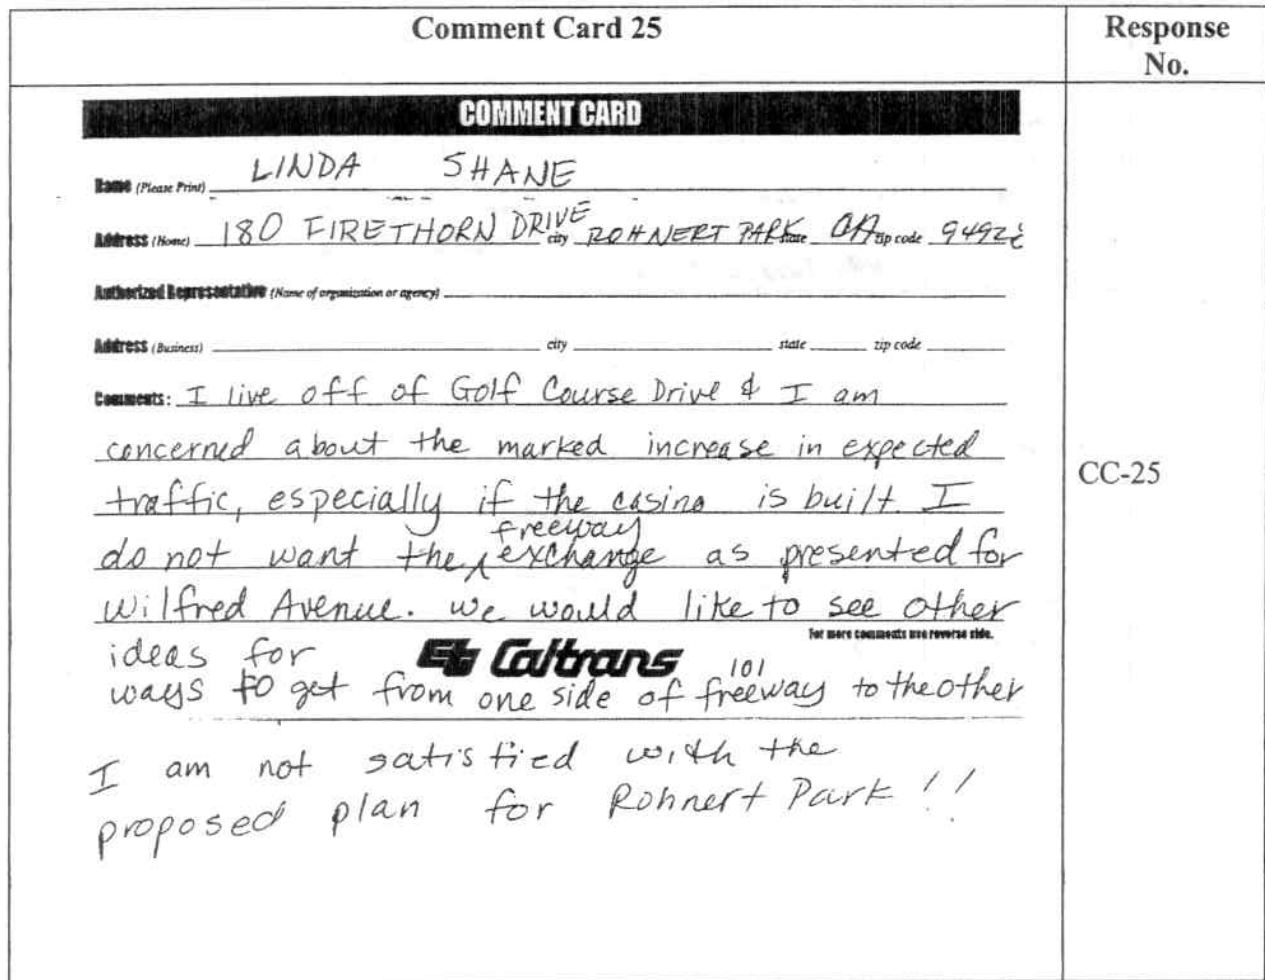 Comment Card 25
Response
No.
COMMENT CARD
Name (Please Print) LINDA SHANE
Address (Home) 180 FIRETHORN DRIVE city ROHNERT PARK state CA zip code 94928
Authorized Representative (Name of organization or agency)
Address (Business) city state zip code
Comments: I live off of Golf Course Drive & I am
concerned about the marked increase in expected
traffic, especially if the casino is built. I
do not want the freeway exchange as presented for
Wilfred Avenue. We would like to see other
For more comments use reverse side.
ideas for
Caltrans
ways to get from one side of 101 freeway to the other
I am not satisfied with the
proposed plan for Rohnert Park!!
CC-25